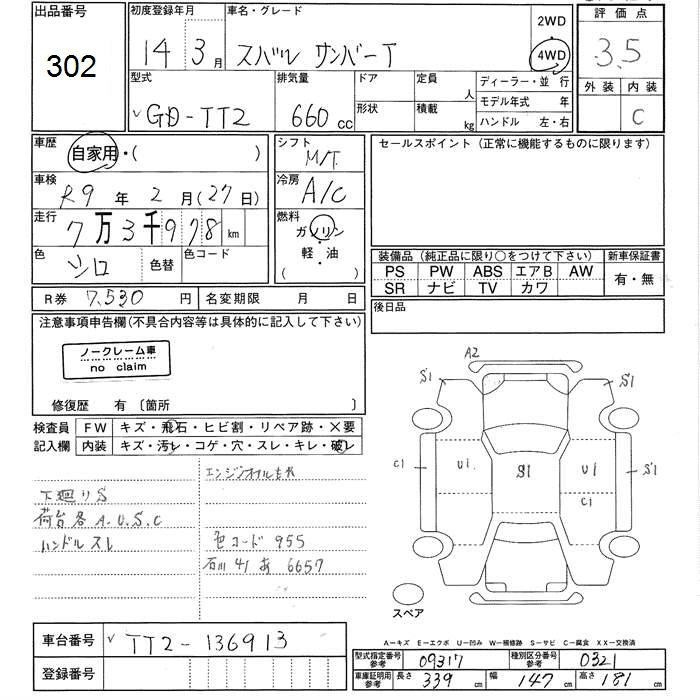 出品番号
302
初度登録年月
14 3月
車名・グレード
スバル サンバーT
2WD
4WD
評価点
3.5
外装
内装
C
型式
GD-TT2
排気量
660cc
ドア
形状
定員
人
積載
kg
ディーラー・並行
モデル年式 年
ハンドル 左・右
車歴
自家用・( )
シフト
M/T
セールスポイント(正常に機能するものに限ります)
車検
R9年 2月(27日)
冷房
A/C
走行
7万3千978km
燃料
ガソリン
・
軽・油
( )
色
シロ
色替
色コード
装備品(純正品に限り○をつけて下さい)
新車保証書
PS PW ABS エアB AW
SR ナビ TV カワ
有・無
R券 7,530円
名変期限 月 日
後日品
注意事項申告欄(不具合内容等は具体的に記入して下さい)
ノークレーム車
no claim
修復歴 有〔箇所 〕
検査員
記入欄
FW キズ・飛石・ヒビ割・リペア跡・×要
内装 キズ・汚レ・コゲ・穴・スレ・キレ・破レ
エンジンオイルもれ
下廻りS
荷台各A.U.S.C
ハンドルスレ
色コード 955
石川 41 あ 6657
A2
S1
S1
C1
U1
S1
U1
S1
C1
スペア
A－キズ E－エクボ U－凹み W－補修跡 S－サビ C－腐食 XX－交換済
車台番号
TT2-136913
登録番号
型式指定番号
参考
09317
種別区分番号
参考
0321
車庫証明用
参考
長さ 339cm
幅 147cm
高さ 181cm